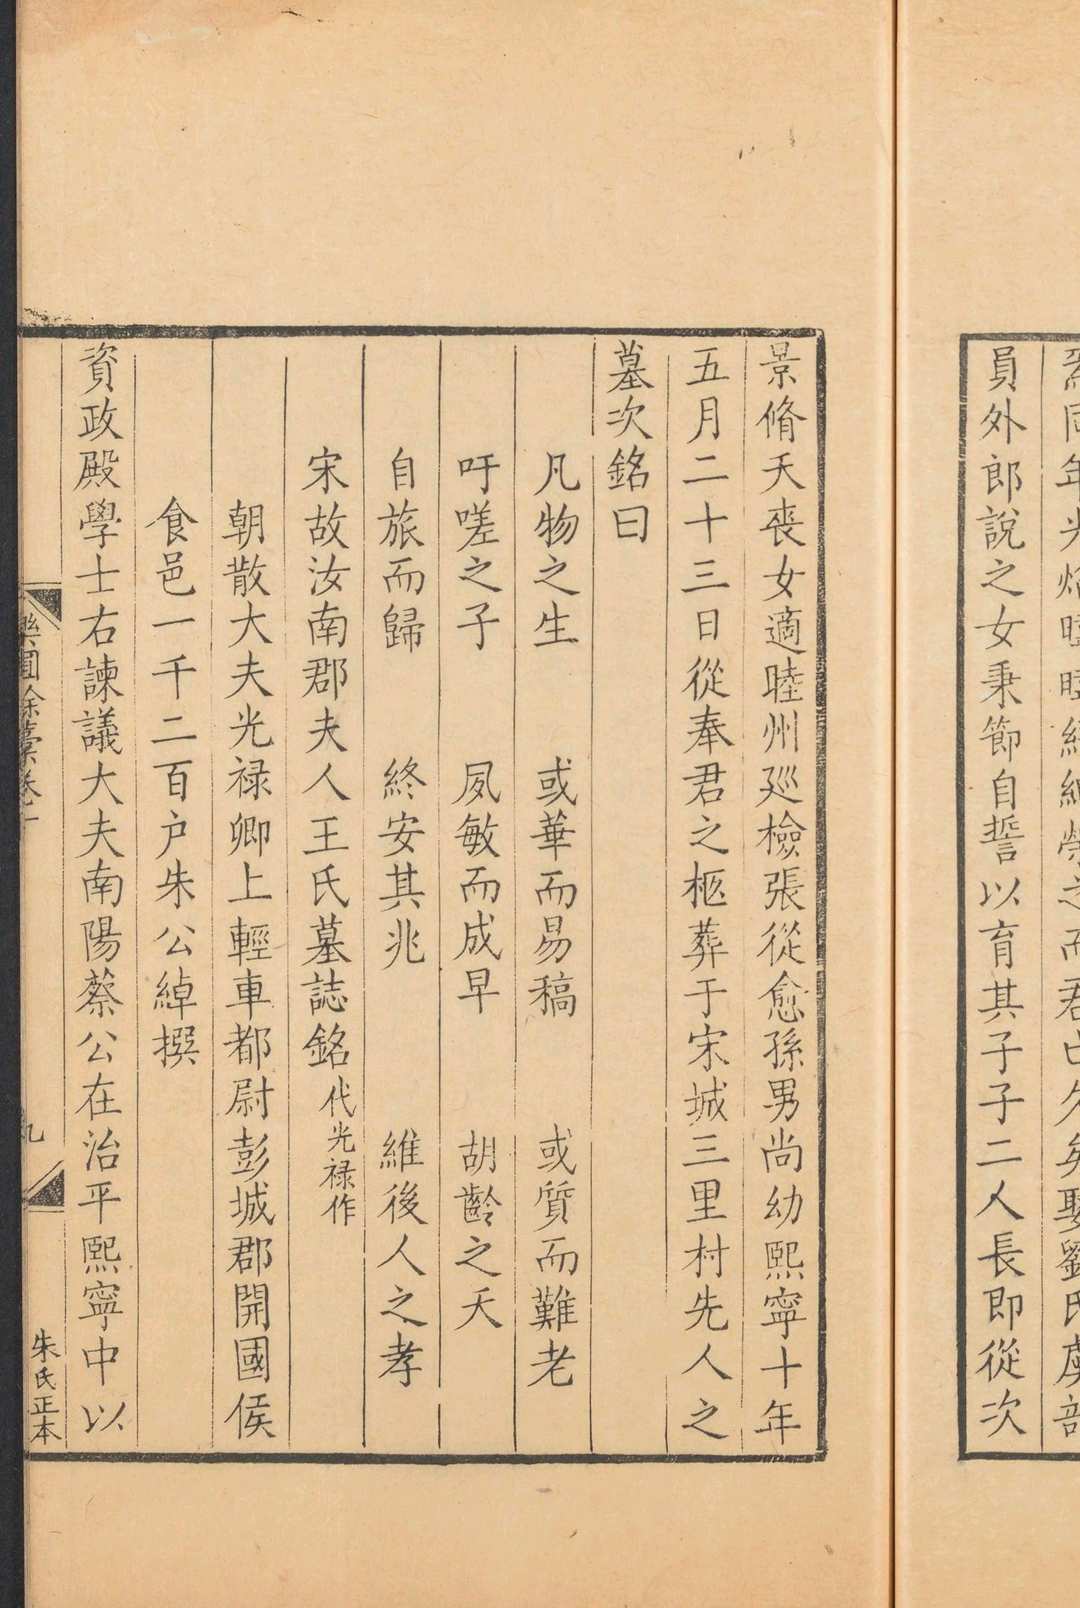 焉同年光焰曄曄縉紳榮之而君亡久矣娶劉氏虞部
員外郎說之女秉節自誓以育其子子二人長即從次
景脩夭喪女適睦州廵檢張從愈孫男尚幼熙寧十年
五月二十三日從奉君之柩葬于宋城三里村先人之
墓次銘曰
凡物之生　或華而易稿　或質而難老
吁嗟之子　夙敏而成早　胡齡之夭
自旅而歸　終安其兆　維後人之孝
宋故汝南郡夫人王氏墓誌銘代光禄作
朝散大夫光禄卿上輕車都尉彭城郡開國侯
食邑一千二百户朱公綽撰
資政殿學士右諫議大夫南陽蔡公在治平熙寧中以
樂圃餘藁卷十
九
朱氏正本